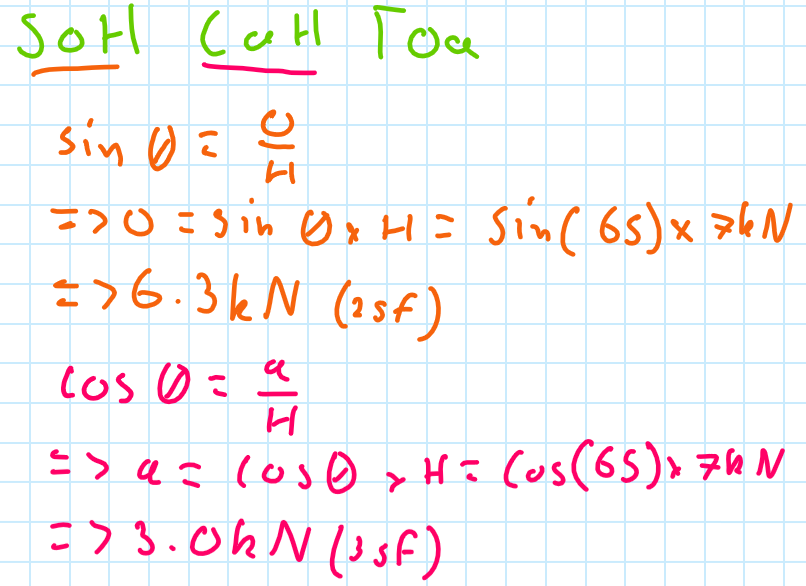 SoH CaH Toa
sin θ = O/H
=> O = sin θ × H = sin(65) × 7kN
=> 6.3kN (2sf)
cos θ = a/H
=> a = cos θ × H = cos(65) × 7kN
=> 3.0kN (2sf)